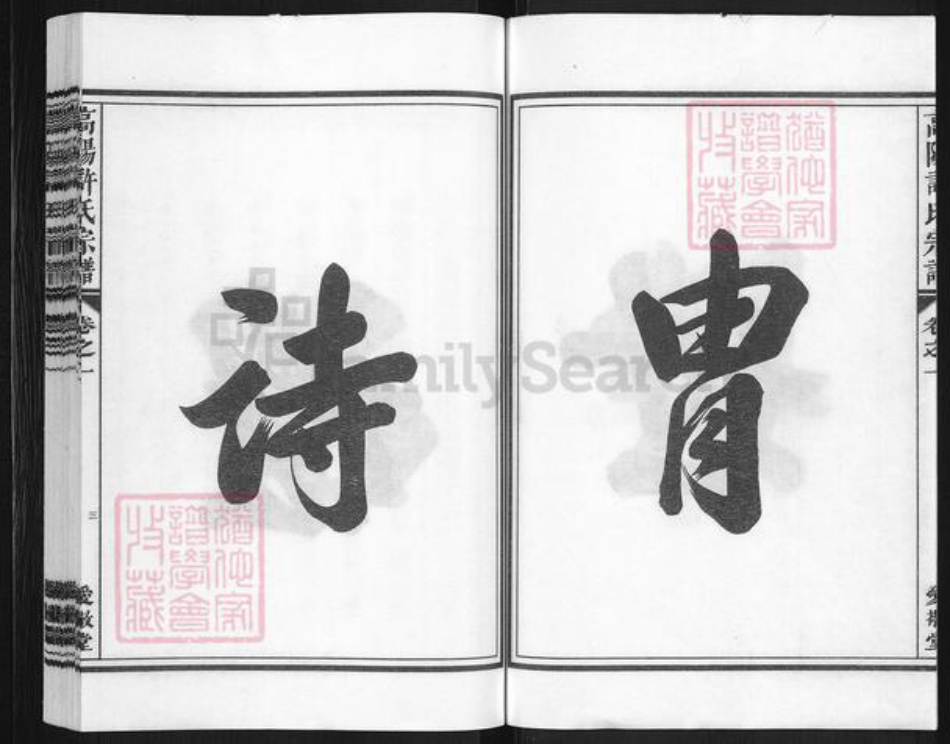 胄
詩
高陽許氏宗譜
卷之一
三
愛敬堂
高陽許氏宗譜
卷之一
愛敬堂
猶他家
譜學會
收藏
猶他家
譜學會
收藏
FamilySearch